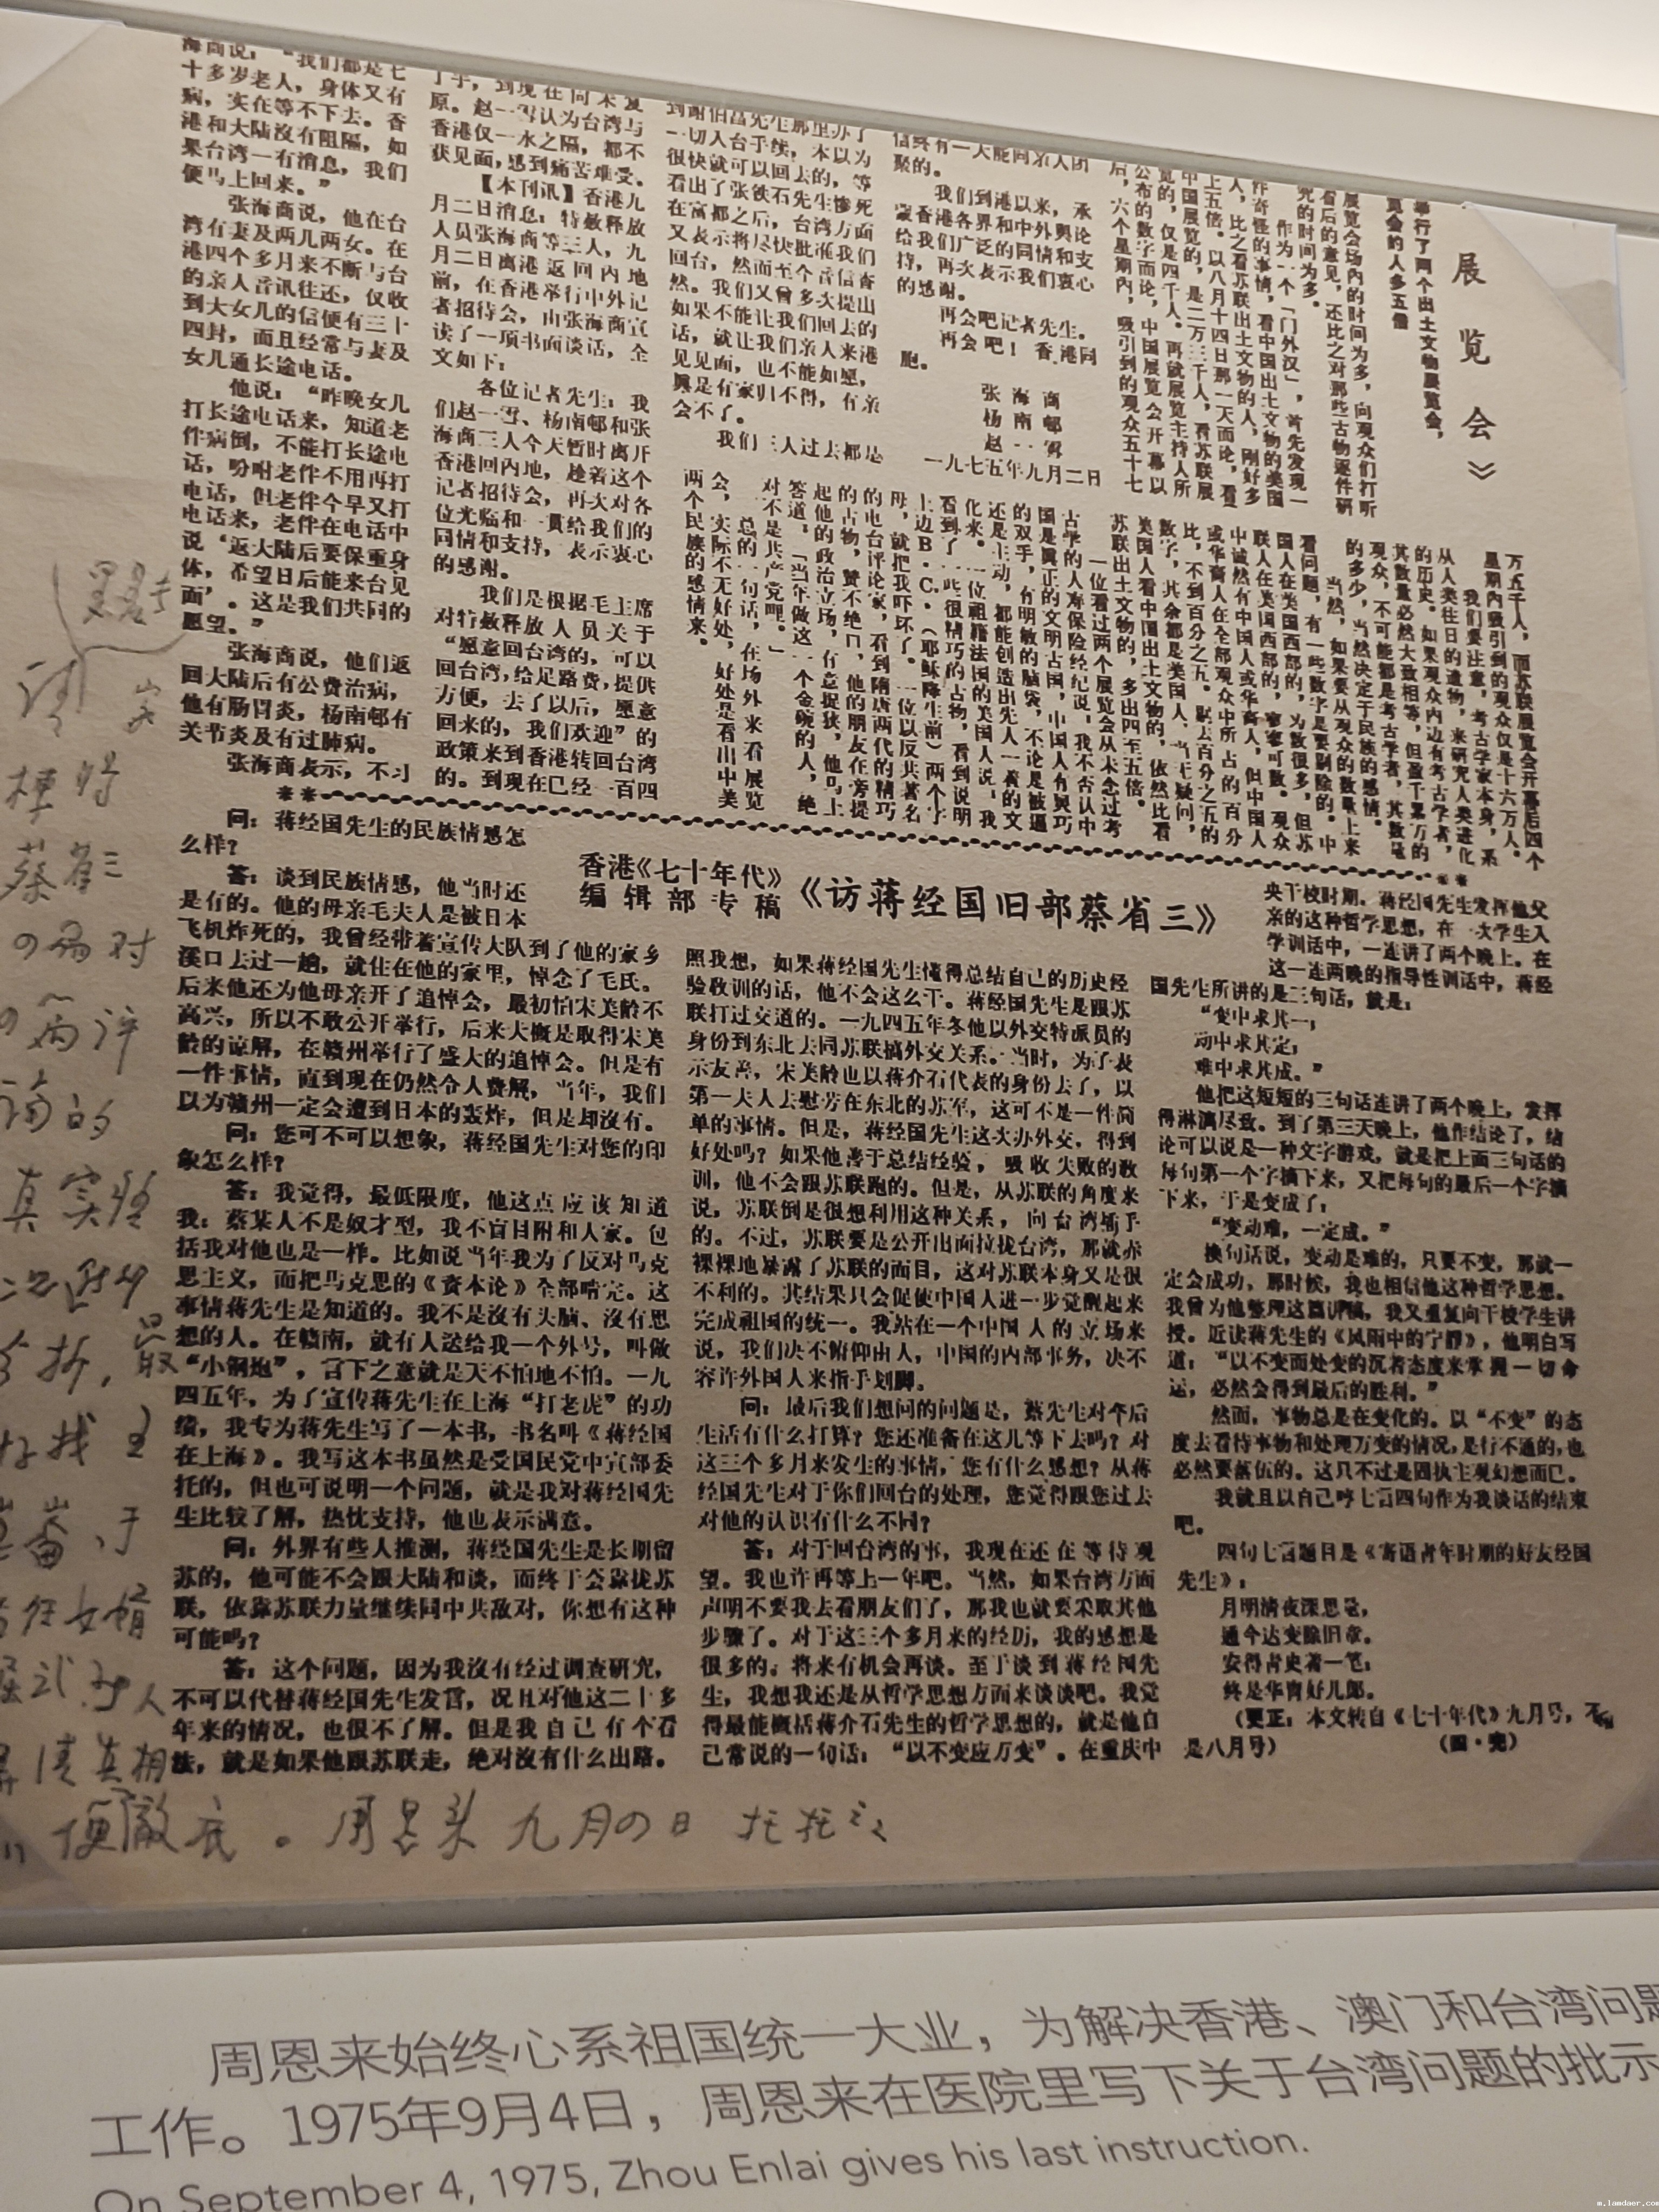 海商说：“我们都是七
十多岁老人，身体又有
病，实在等不下去。香
港和大陆没有阻隔，如
果台湾一有消息，我们
便马上回来。”
张海商说，他在台
湾有妻及两儿两女。在
港四个多月来不断与台
的亲人音讯往还，仅收
到大女儿的信便有三十
四封，而且经常与妻及
女儿通长途电话。
他说：“昨晚女儿
打长途电话来，知道老
伴病倒，不能打长途电
话，吩咐老伴不用再打
电话，但老伴今早又打
电话来，老伴在电话中
说‘返大陆后要保重身
体，希望日后能来台见
面’。这是我们共同的
愿望。”
张海商说，他们返
回大陆后有公费治病，
他有肠胃炎，杨南邨有
关节炎及有过肺病。
张海商表示，不习
了手，到现在尚未复
原。赵一雪认为台湾与
香港仅一水之隔，都不
获见面，感到痛苦难受。
【本刊讯】香港九
月二日消息：特赦释放
人员张海商等三人，九
月二日离港返回内地
前，在香港举行中外记
者招待会，由张海商宣
读了一项书面谈话，全
文如下：
各位记者先生：我
们赵一雪、杨南邨和张
海商三人今天暂时离开
香港回内地，趁着这个
记者招待会，再次对各
位光临和一贯给我们的
同情和支持，表示衷心
的感谢。
我们是根据毛主席
对特赦释放人员关于
“愿意回台湾的，可以
回台湾，给足路费，提供
方便，去了以后，愿意
回来的，我们欢迎”的
政策来到香港转回台湾
的。到现在已经一百四
到谢伯昌先生那里办了
一切入台手续，本以为
很快就可以回去的，等
看出了张铁石先生惨死
在富都之后，台湾方面
又表示将尽快批准我们
回台，然而至今音信杳
然。我们又曾多次提出
如果不能让我们回去的
话，就让我们亲人来港
见见面，也不能如愿，
真是有家归不得，有亲
会不了。
我们三人过去都是
信终有一天能同亲人团
聚的。
我们到港以来，承
蒙香港各界和中外舆论
给我们广泛的同情和支
持，再次表示我们衷心
的感谢。
再会吧记者先生。
再会吧！香港同
胞。
张海商
杨南邨
赵一雪
一九七五年九月二日
展览会》
举行了两个出土文物展览会，
览会的人多五倍
展览会场内的时间为多，向观众们打听
看后的意见，还比之对那些古物逐件研
究的时间为多。
作为一个「门外汉」，首先发现一
件奇怪的事情，看中国出土文物的美国
人，比之看苏联出土文物的人，刚好多
上五倍。以八月十四日那一天而论，看
中国展览的，是二万三千人，看苏联展
览的，仅是四千人。再就展览主持人所
公布的数字而论，中国展览会开幕以
后，六个星期内，吸引到的观众五十七
万五千人，而苏联展览会开幕后四个
星期内吸引到的观众仅是十六万人。
我们要注意，考古学家本身，系
从人类往日的遗物，来研究人类进化
的历史。如果观众内边有考古学者，
其数量必然大致相等，但盈千累万的
观众，不可能都是考古学者，其数量
的多少，当然决定于民族的感情。
当然，如果要从观众的数量上来
看问题，有一些数字是要剔除的。中
国人在美国西部的，为数很多，但苏
联人在美国西部的，寥寥可数。观众
中诚然有中国人或华裔人，但中国人
或华裔人在全部观众中所占的百分
比，不到百分之五。除去百分之五的
数字，其余都是美国人，当无疑问，
美国人看中国出土文物的，依然比看
苏联出土文物的，多出四至五倍。
一位看过两个展览会从未念过考
古学的人寿保险经纪说，我不否认中
国是真正的文明古国，中国人有奥巧
的双手，有明敏的脑袋，不论是被逼
还是主动，都能创造出先人一着的文
化来。一位祖籍法国的美国人说，我
看到了一些很精巧的古物，看到说明
上边B．C．（耶稣降生前）两个字
母，就把我吓坏了。一位以反共著名
的电台评论家，看到隋唐两代的精巧
的古物，赞不绝口，他的朋友在旁提
起他的政治立场，有意捉狭，他马上
答道，「当年做这一个金碗的人，绝
对不是共产党哩。」
总的一句话，在场外来看展览
会，实际不无好处，好处是看出中美
两个民族的感情来。
香港《七十年代》
编辑部专稿
《访蒋经国旧部蔡省三》
问：蒋经国先生的民族情感怎
么样？
答：谈到民族情感，他当时还
是有的。他的母亲毛夫人是被日本
飞机炸死的，我曾经带着宣传大队到了他的家乡
溪口去过一趟，就住在他的家里，悼念了毛氏。
后来他还为他母亲开了追悼会，最初怕宋美龄不
高兴，所以不敢公开举行，后来大概是取得宋美
龄的谅解，在赣州举行了盛大的追悼会。但是有
一件事情，直到现在仍然令人费解，当年，我们
以为赣州一定会遭到日本的轰炸，但是却没有。
问：您可不可以想象，蒋经国先生对您的印
象怎么样？
答：我觉得，最低限度，他这点应该知道
我：蔡某人不是奴才型，我不盲目附和人家。包
括我对他也是一样。比如说当年我为了反对马克
思主义，而把马克思的《资本论》全部啃完。这
事情蒋先生是知道的。我不是没有头脑、没有思
想的人。在赣南，就有人送给我一个外号，叫做
“小钢炮”，言下之意就是天不怕地不怕。一九
四五年，为了宣传蒋先生在上海“打老虎”的功
绩，我专为蒋先生写了一本书，书名叫《蒋经国
在上海》。我写这本书虽然是受国民党中宣部委
托的，但也可说明一个问题，就是我对蒋经国先
生比较了解，热忱支持，他也表示满意。
问：外界有些人推测，蒋经国先生是长期留
苏的，他可能不会跟大陆和谈，而终于会靠拢苏
联，依靠苏联力量继续同中共敌对，你想有这种
可能吗？
答：这个问题，因为我没有经过调查研究，
不可以代替蒋经国先生发言，况且对他这二十多
年来的情况，也很不了解。但是我自己有个看
法，就是如果他跟苏联走，绝对没有什么出路。
照我想，如果蒋经国先生懂得总结自己的历史经
验教训的话，他不会这么干。蒋经国先生是跟苏
联打过交道的。一九四五年冬他以外交特派员的
身份到东北去同苏联搞外交关系。当时，为了表
示友善，宋美龄也以蒋介石代表的身份去了，以
第一夫人去慰劳在东北的苏军，这可不是一件简
单的事情。但是，蒋经国先生这次办外交，得到
好处吗？如果他善于总结经验，吸收失败的教
训，他不会跟苏联跑的。但是，从苏联的角度来
说，苏联倒是很想利用这种关系，向台湾插手
的。不过，苏联要是公开出面拉拢台湾，那就赤
裸裸地暴露了苏联的面目，这对苏联本身又是很
不利的。其结果只会促使中国人进一步觉醒起来
完成祖国的统一。我站在一个中国人的立场来
说，我们决不俯仰由人，中国的内部事务，决不
容许外国人来指手划脚。
问：最后我们想问的问题是，蔡先生对今后
生活有什么打算？您还准备在这儿等下去吗？对
这三个多月来发生的事情，您有什么感想？从蒋
经国先生对于你们回台的处理，您觉得跟您过去
对他的认识有什么不同？
答：对于回台湾的事，我现在还在等待观
望。我也许再等上一年吧。当然，如果台湾方面
声明不要我去看朋友们了，那我也就要采取其他
步骤了。对于这三个多月来的经历，我的感想是
很多的。将来有机会再谈。至于谈到蒋经国先
生，我想我还是从哲学思想方面来谈谈吧。我觉
得最能概括蒋介石先生的哲学思想的，就是他自
己常说的一句话：“以不变应万变”。在重庆中
央干校时期，蒋经国先生发挥他父
亲的这种哲学思想，在一次学生入
学训话中，一连讲了两个晚上。在
这一连两晚的指导性训话中，蒋经
国先生所讲的是三句话，就是：
“变中求其一；
动中求其定；
难中求其成。”
他把这短短的三句话连讲了两个晚上，发挥
得淋漓尽致。到了第三天晚上，他作结论了，结
论可以说是一种文字游戏，就是把上面三句话的
每句第一个字摘下来，又把每句的最后一个字摘
下来，于是变成了：
“变动难，一定成。”
换句话说，变动是难的，只要不变，那就一
定会成功，那时候，我也相信他这种哲学思想。
我曾为他整理这篇讲稿，我又重复向干校学生讲
授。近读蒋先生的《风雨中的宁静》，他明白写
道：“以不变而处变的沉着态度来掌握一切命
运，必然会得到最后的胜利。”
然而，事物总是在变化的。以“不变”的态
度去看待事物和处理万变的情况，是行不通的，也
必然要落伍的。这只不过是固执主观幻想而已。
我就且以自己哼七言四句作为我谈话的结束
吧。
四句七言题目是《寄语青年时期的好友经国
先生》：
月明清夜深思量，
通今达变除旧章。
安得青史著一笔；
终是华胄好儿郎。
（更正：本文转自《七十年代》九月号，不
是八月号）
（四·完）
请
家
楝将
蔡省三
的两评
论的
真实性
分析，最
好找王
崑崙、于
女婿
屈武等人
弄清真相
便彻底。周恩来 九月四日 托托之
周恩来始终心系祖国统一大业，为解决香港、澳门和台湾问题
工作。1975年9月4日，周恩来在医院里写下关于台湾问题的批示
On September 4, 1975, Zhou Enlai gives his last instruction.
m.lamdaer.com